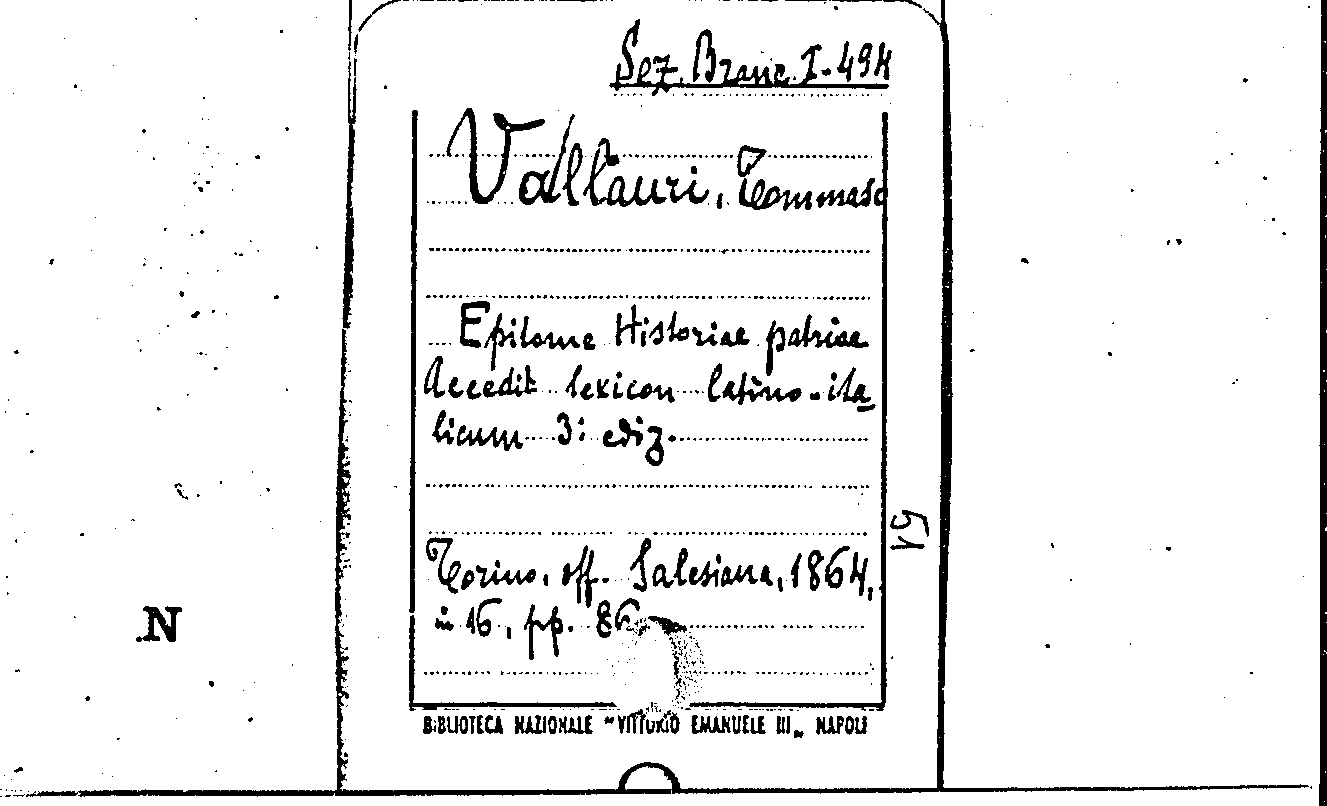 Sez. Branc. I-494
Vallauri, Tommaso
Epitome Historiae patriae
Accedit lexicon latino-ita
licum 3ª ediz.
Torino, off. Salesiana, 1864,
in 16, pp. 86
51
N
BIBLIOTECA NAZIONALE "VITTORIO EMANUELE III„ NAPOLI